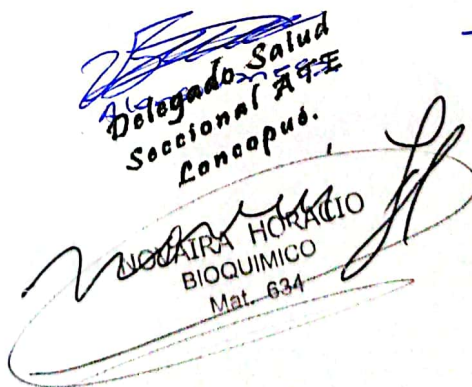 Delegado Salud
Seccional ATE
Loncopué.
HORACIO
BIOQUIMICO
Mat. 634